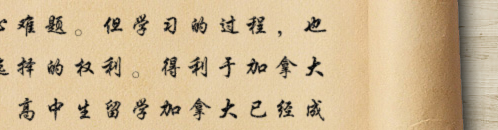 难题。但学习的过程，也
选择的权利。得利于加拿大
高中生留学加拿大已经成